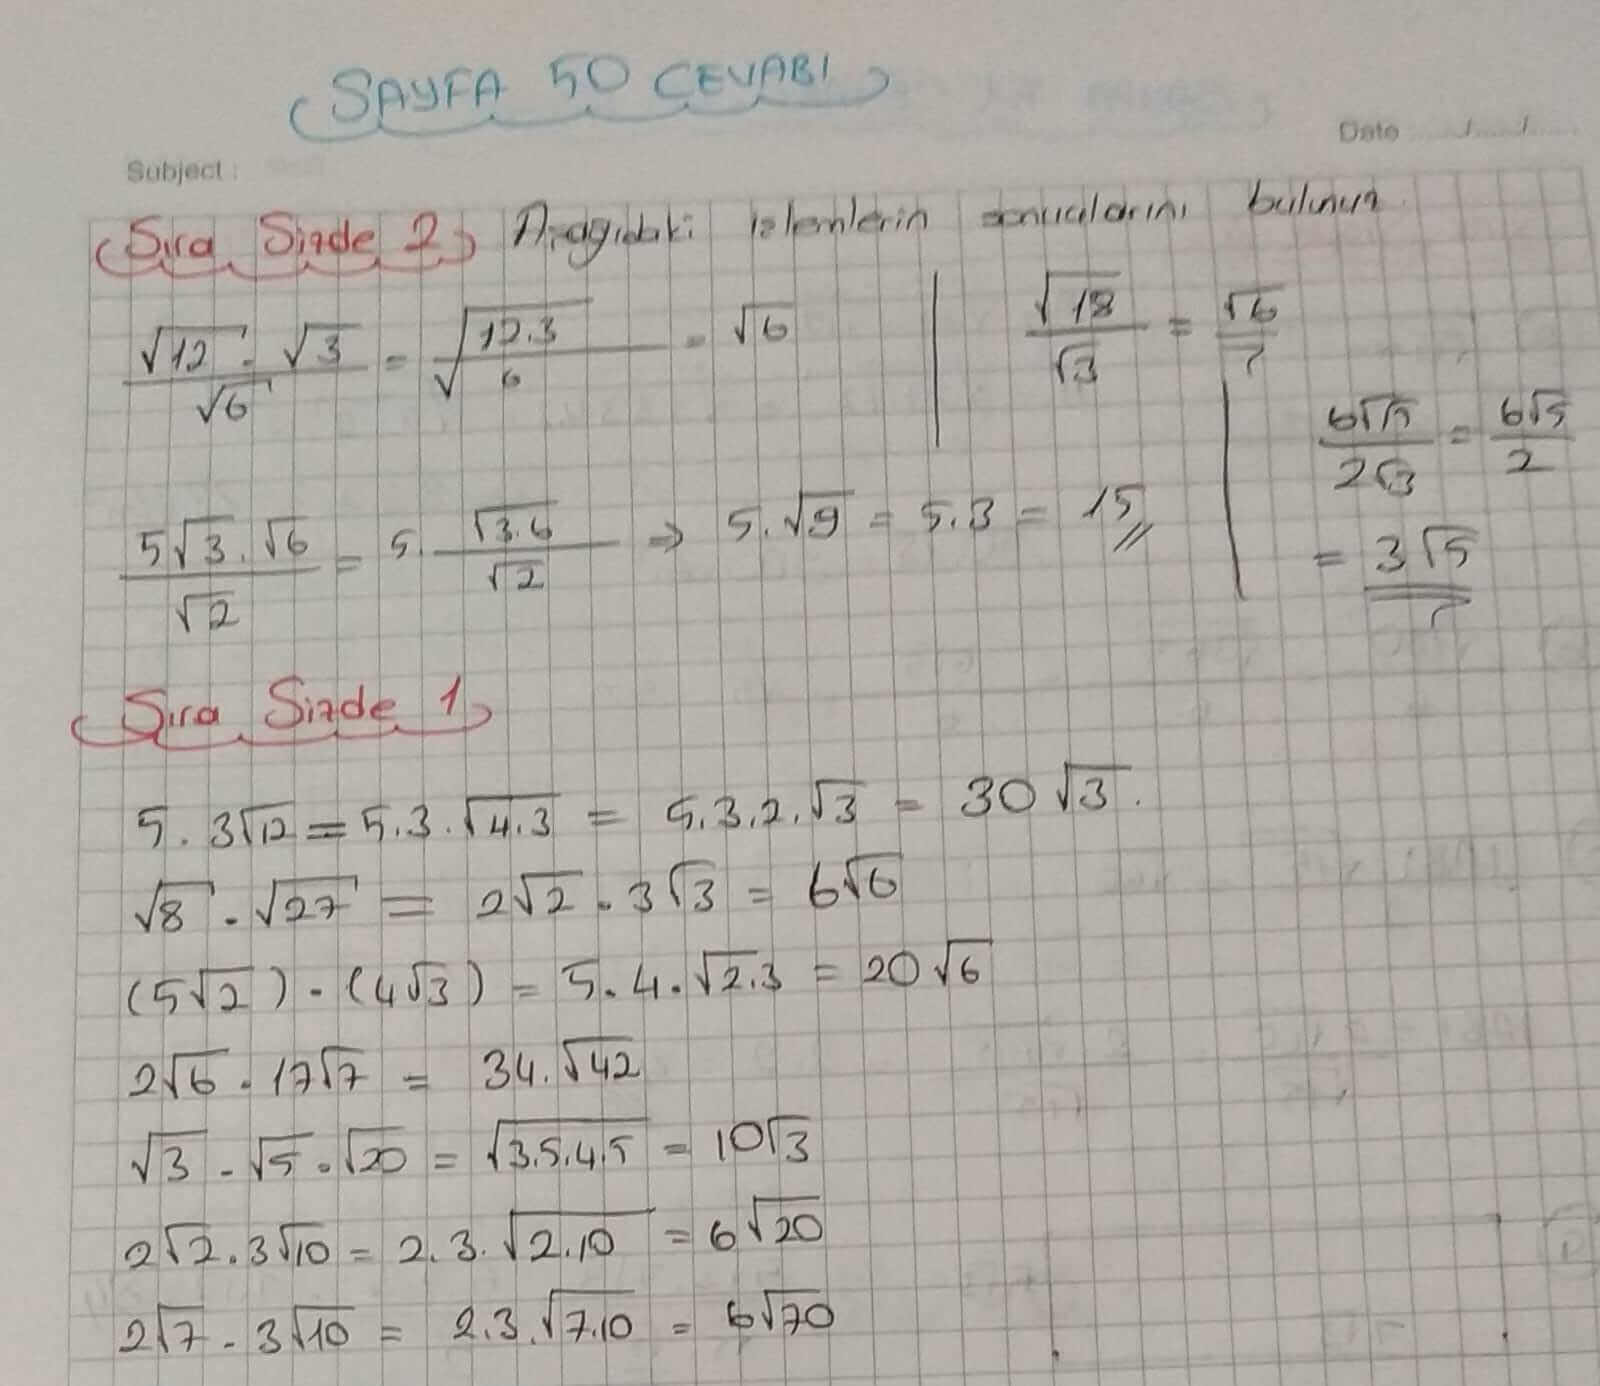 SAYFA 50 CEVABI
Date ...../...../.....
Subject :
Sıra Sizde 2 Aşağıdaki işlemlerin sonuçlarını bulunuz
(√12 · √3)/√6 = √(12.3/6) = √6
√18/√3 = √6
(5√3 . √6)/√2 = 5. √3.6/√2 ⇒ 5.√9 = 5.3 = 15
6√15/2√3 = 6√5/2
= 3√5
Sıra Sizde 1
5 . 3√12 = 5.3.√4.3 = 5.3.2.√3 = 30√3.
√8 · √27 = 2√2 · 3√3 = 6√6
(5√2) · (4√3) = 5.4.√2.3 = 20√6
2√6 · 17√7 = 34.√42
√3 · √5 · √20 = √3.5.4.5 = 10√3
2√2 . 3√10 = 2.3.√2.10 = 6√20
2√7 · 3√10 = 2.3.√7.10 = 6√70